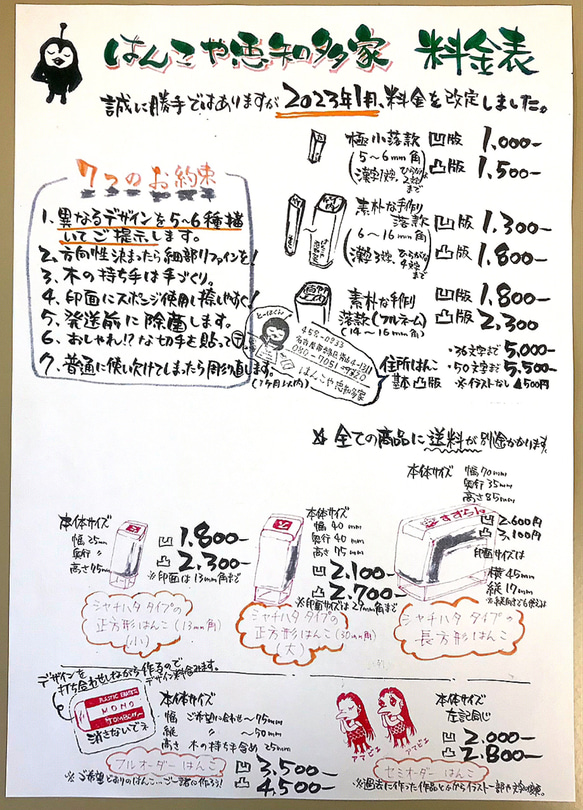 はんこや恵知多家 料金表
誠に勝手ではありますが2023年1月、料金を改定しました。
極小落款 凹版 1,000-
(5~6mm角 凸版 1,500-
漢字1文字、ひらがな2文字まで)
素朴な手作り
落款 凹版 1,300-
(6~16mm角) 凸版 1,800-
(漢字3文字、ひらがな4文字まで)
素朴な手作り 凹版 1,800-
落款(フルネーム) 凸版 2,300
(14~16mm角)
7つのお約束
1、異なるデザインを5~6種描
いてご提示します。
2、方向性決まったら細部リファインを!
3、木の持ち手は手づくり。
4、印面にスポンジ使用し捺しやすく!
5、発送前に除菌します。
6、おしゃれ!?な切手を貼って〒。
7、普通に使い欠けてしまったら彫り直します。
(1ヶ月以内)
458-0833
はんこや恵知多家
住所はんこ ・36文字まで 5,000-
基本凸版 ・50文字まで 5,500-
※イラストなし 4,500円
全ての商品に送料が別途かかります。
本体サイズ
幅 25mm
奥行 〃
高さ 75mm
凹 1,800-
凸 2,300-
※印面は13mm角まで
シャチハタタイプの
正方形はんこ(13mm角)
(小)
本体サイズ
幅 40mm
奥行 40mm
高さ 75mm
凹 2,100-
凸 2,700-
※印面サイズは29mm角まで
シャチハタタイプの
正方形はんこ(30mm角)
(大)
本体サイズ 幅70mm
奥行35mm
高さ85mm
すずらん
凹 2,600円
凸 3,100円
印面サイズは
横45mm
縦17mm
シャチハタタイプの
長方形はんこ
デザインを
打ち合わせしながら作るので
デザイン料含みます。
PLASTIC ERASER
MONO
TOMBOW
消さないでネ
本体サイズ
幅 ご希望に合わせ~75mm
縦 〃 ~50mm
高さ 木の持ち手含め 25mm
フルオーダーはんこ
凹 3,500-
凸 4,500-
※ご希望どおりのはんこ…ご一緒に作ろう!
アマビエ アマビエ
本体サイズ
左記同じ
凹 2,000-
凸 2,800-
セミオーダーはんこ